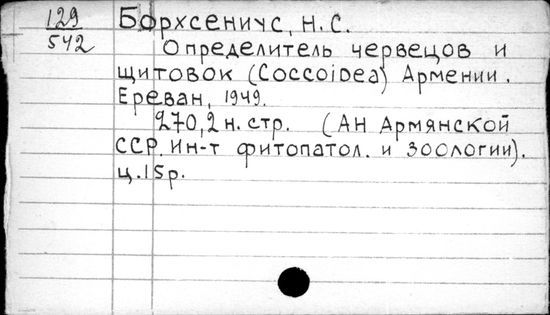 129
542
Борхсениус, Н.С.
Определитель червецов и
щитовок (Coccoidea) Армении.
Ереван, 1949.
270,2 н. стр. (АН Армянской
ССР. Ин-т фитопатол. и зоологии).
ц. 15 р.